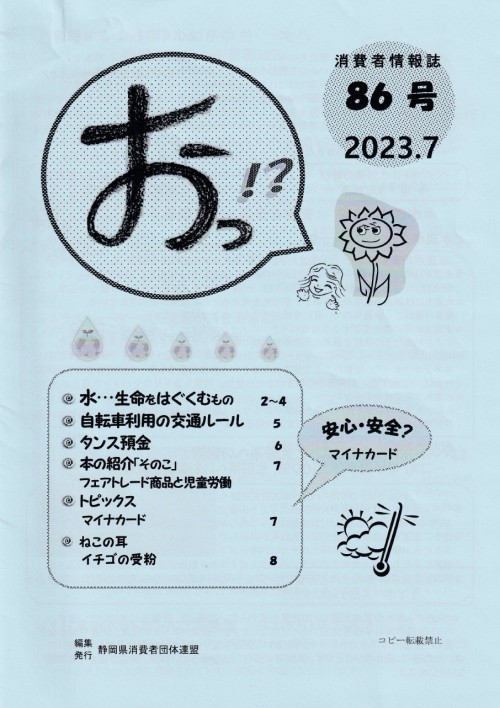 消費者情報誌
86 号
2023.7
おっ!?
水…生命をはぐくむもの 2~4
自転車利用の交通ルール 5
タンス預金 6
本の紹介「そのこ」 7
フェアトレード商品と児童労働
トピックス
マイナカード 7
ねこの耳
イチゴの受粉 8
安心・安全?
マイナカード
編集
発行 静岡県消費者団体連盟
コピー転載禁止